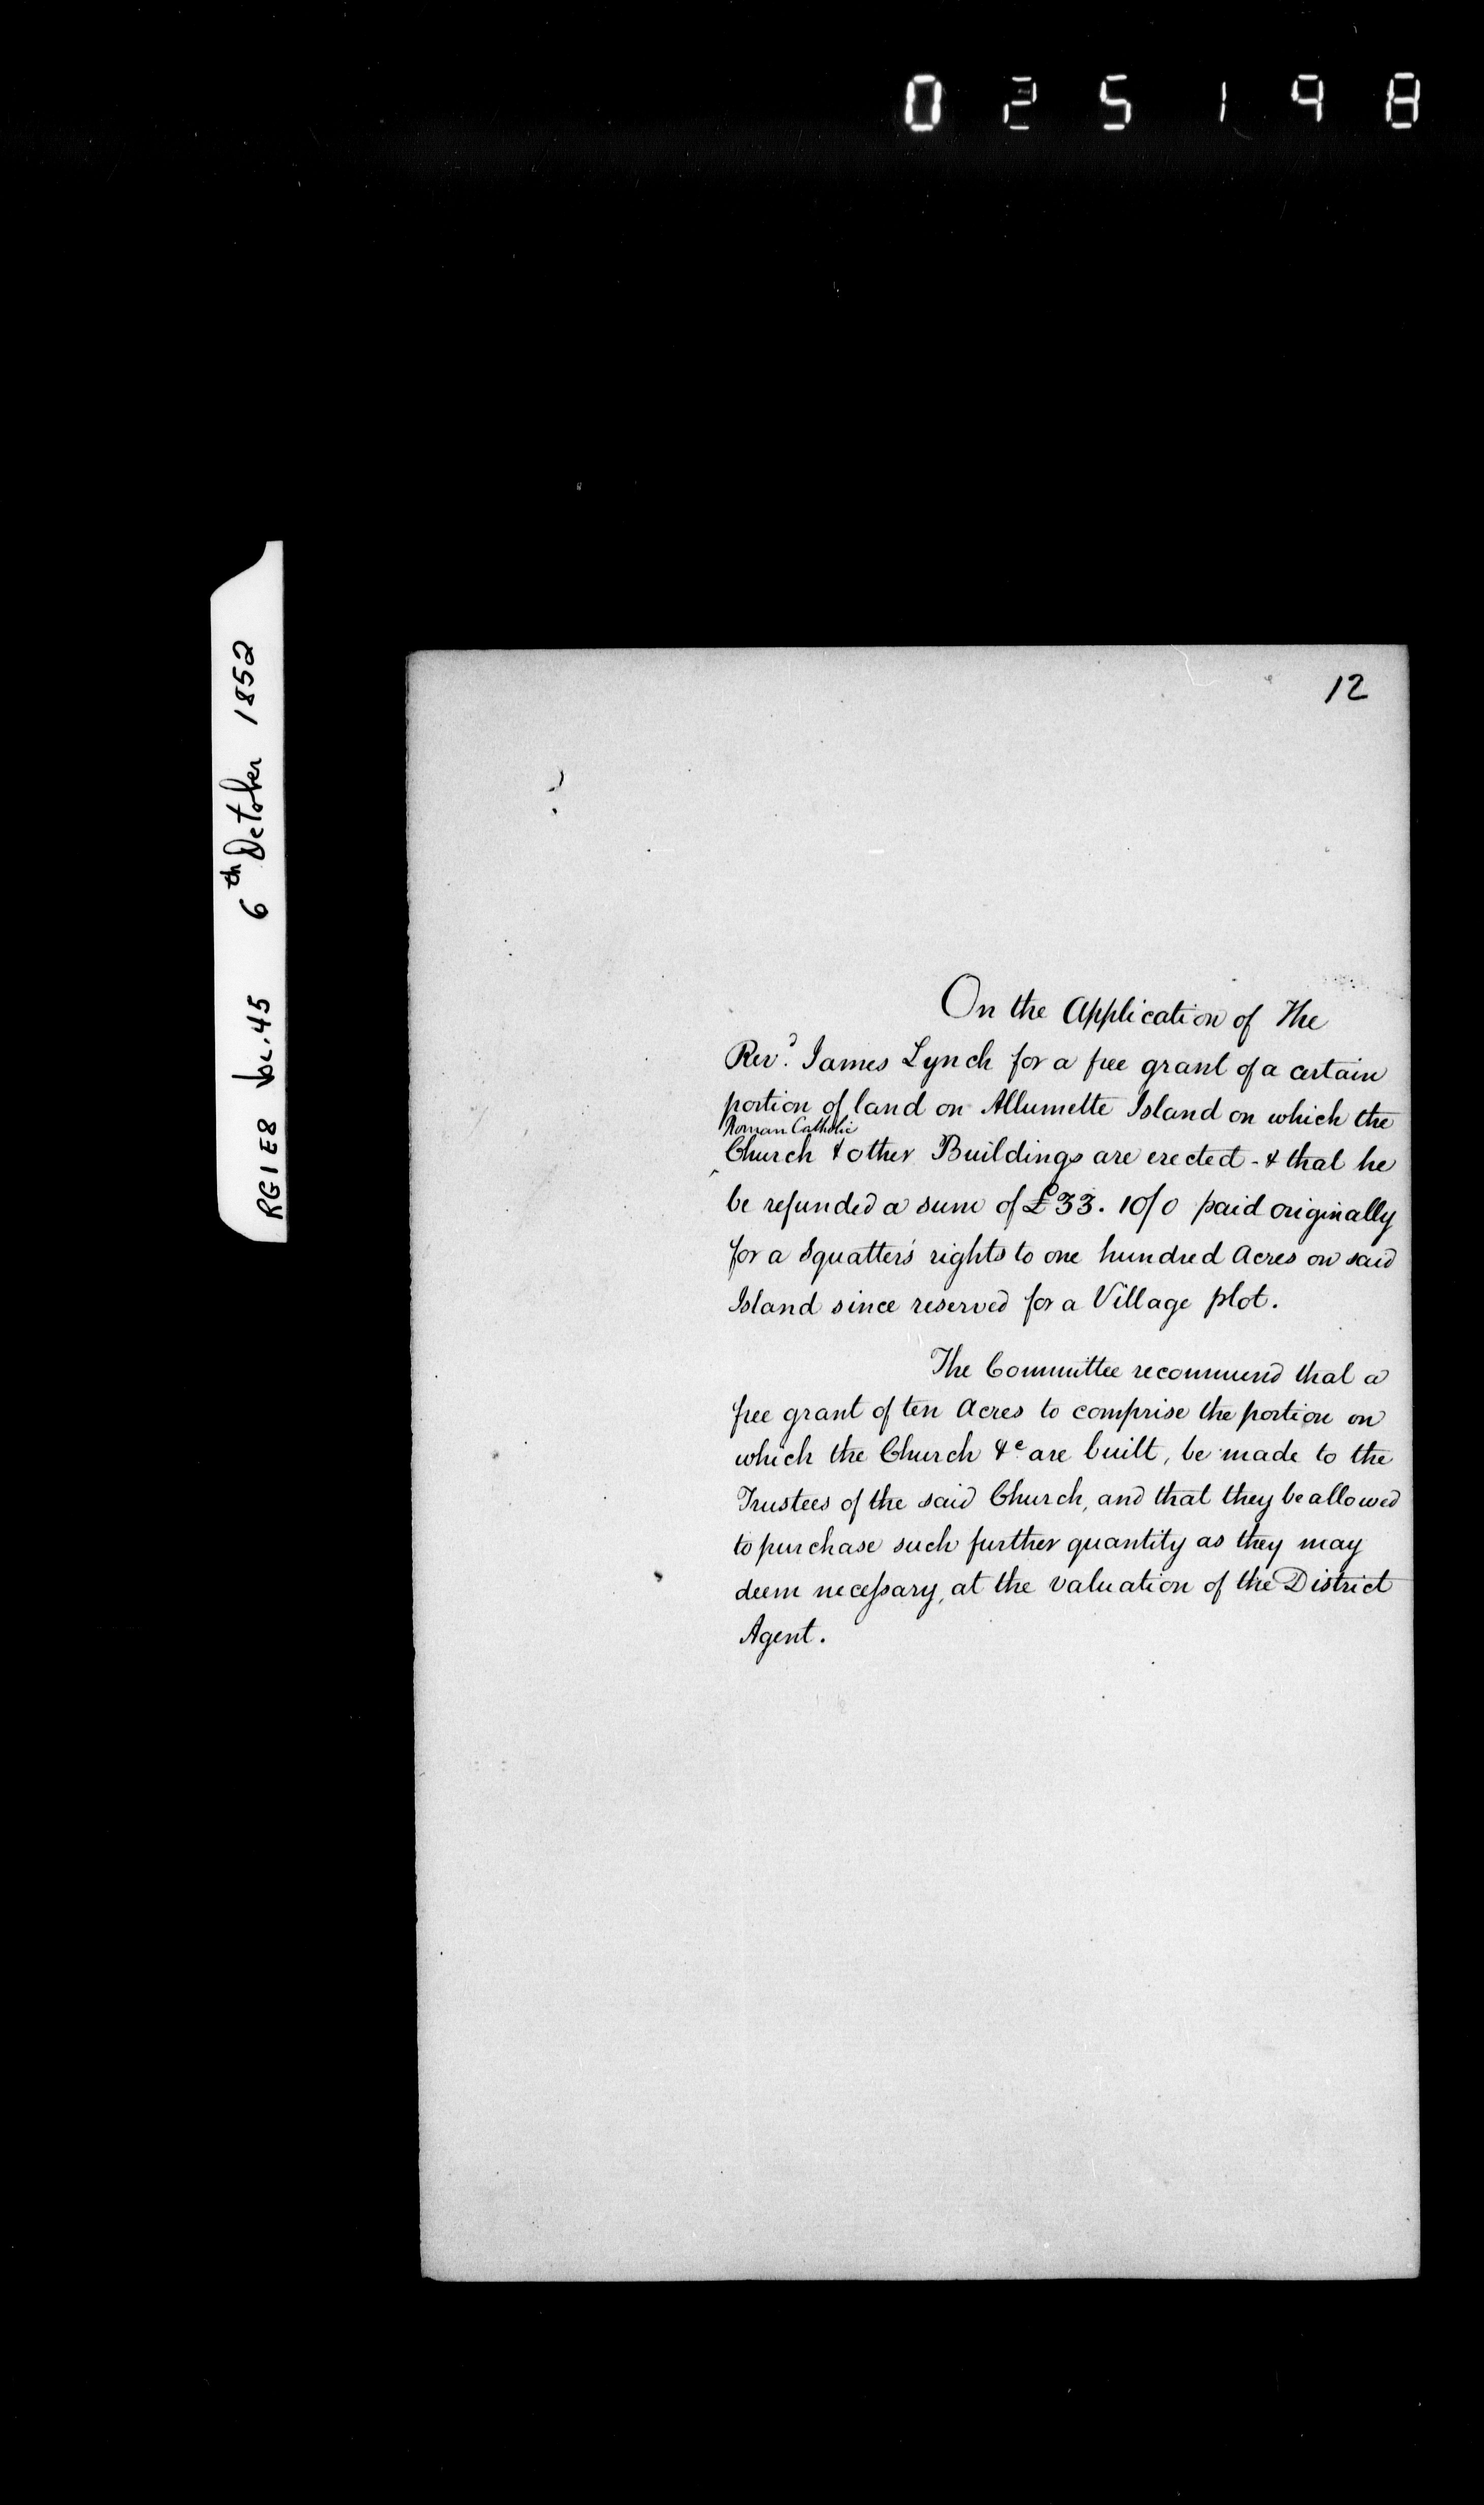 025198
RG1E8 Vol.45 6th October 1852
12
On the Application of The
Revd. James Lynch for a free grant of a certain
portion of land on Allumette Island on which the
Roman Catholic
^Church & other Buildings are erected - & that he
be refunded a sum of £33. 10/0 paid originally
for a Squatter's rights to one hundred Acres on said
Island since reserved for a Village plot.
The Committee recommend that a
free grant of ten Acres to comprise the portion on
which the Church &c are built, be made to the
Trustees of the said Church, and that they be allowed
to purchase such further quantity as they may
deem necessary, at the valuation of the District
Agent.